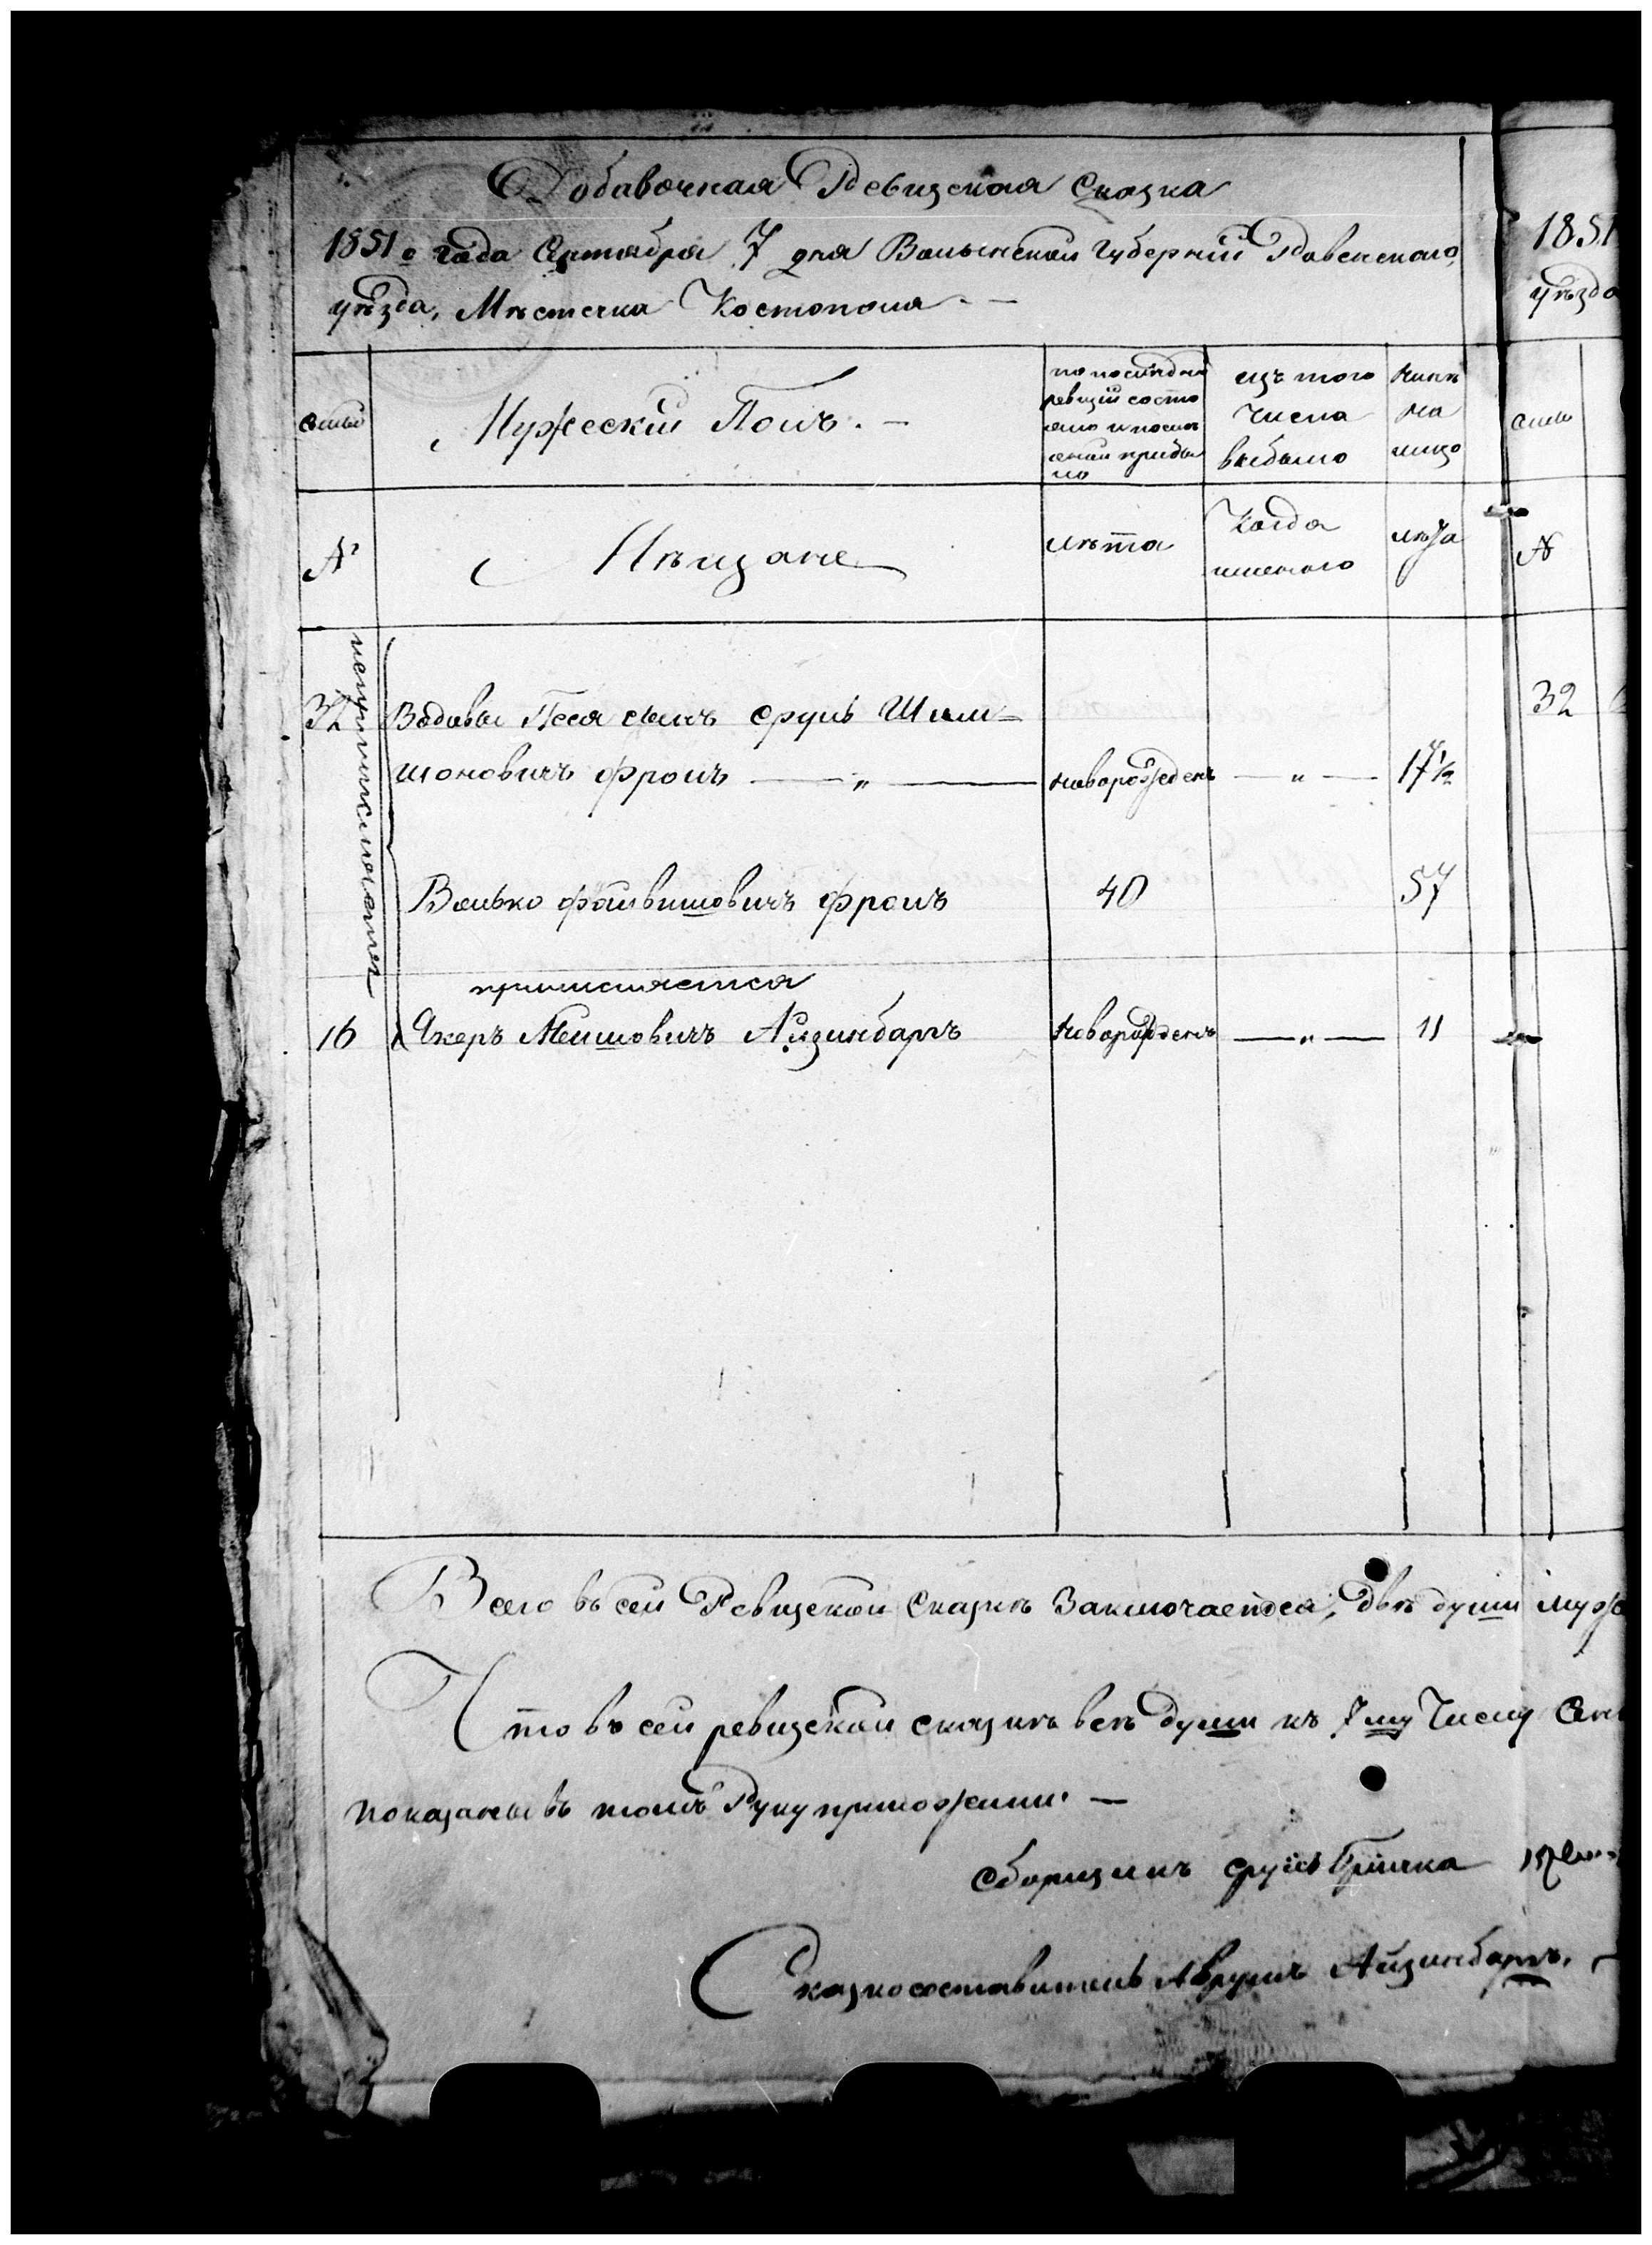 Добавочная Ревизская Сказка
1851о года Сентября 7 дня Волынской губерніи Ровенского
уѣзда, Мѣстечка Костополя
семьи
Мужескій Полъ.
по послѣдней
ревизіи состо
яло и послѣ
оной прибы
ло
изъ того
числа
выбыло
нынѣ
на
лицо
№
Мѣщане
лѣта
Когда
именно
лѣта
32 Вдовы Песя сынъ Сруль Шлим
шоновичъ Фроимъ " новорожденъ " 17½
Волько Файвишовичъ Фроимъ 40 57
причисляется
16 Якеръ Мошковичъ Айзинбаргъ новорожденъ " 11
Всего въ сей Ревизской Сказкѣ Заключается, двѣ души муж
Что въ сей ревизской сказкѣ всѣ души къ 7му Числу Сен
показаны въ томъ Руку приложили
Сборщикъ Сруль
Сказкосоставитель Аврумъ Айзинбаргъ.
1851
уѣзда
семьи
№
32